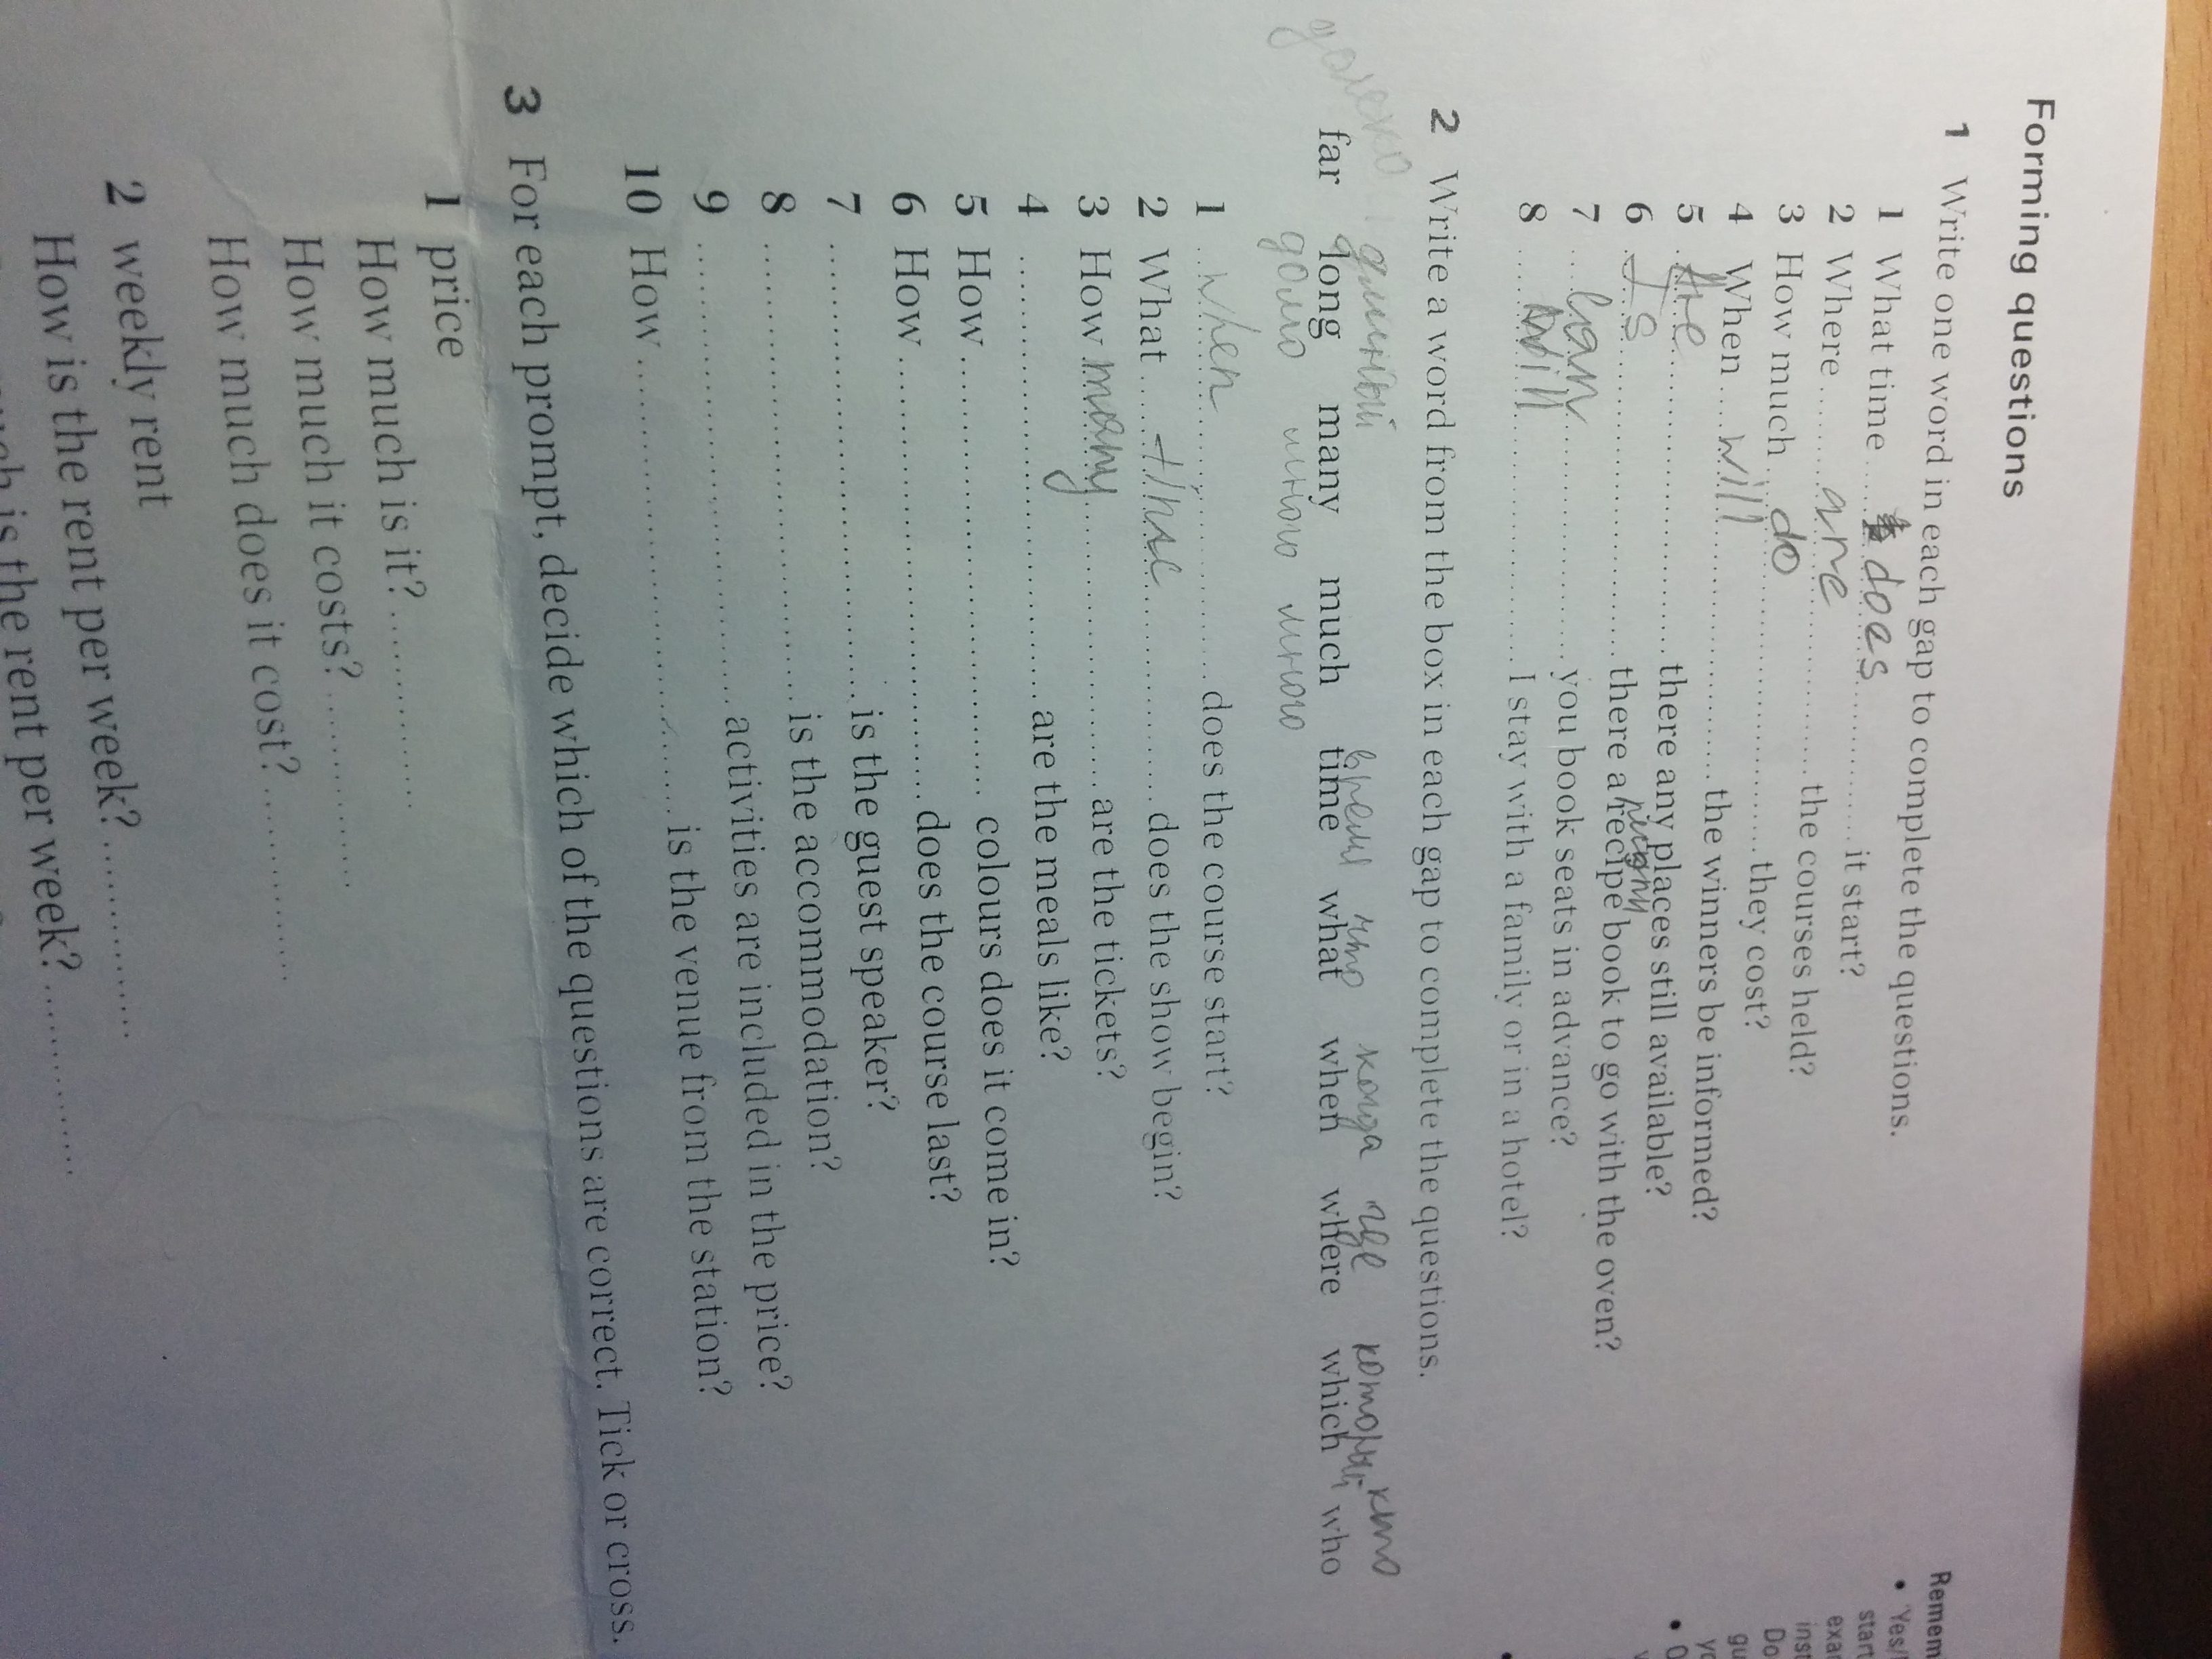 Forming questions
1 Write one word in each gap to complete the questions.
1 What time ..... does ..... it start?
2 Where ..... are ..... the courses held?
3 How much ..... do ..... they cost?
4 When ..... will ..... the winners be informed?
5 ..... Are ..... there any places still available?
6 ..... Is ..... there a recipe book to go with the oven?
7 ..... can ..... you book seats in advance?
8 ..... will ..... I stay with a family or in a hotel?
2 Write a word from the box in each gap to complete the questions.
далеко длинный время что когда где который кто
far long many much time what when where which who
долго много много
1 ..... when ..... does the course start?
2 What ..... time ..... does the show begin?
3 How many ..... are the tickets?
4 ..... are the meals like?
5 How ..... colours does it come in?
6 How ..... does the course last?
7 ..... is the guest speaker?
8 ..... is the accommodation?
9 ..... activities are included in the price?
10 How ..... is the venue from the station?
3 For each prompt, decide which of the questions are correct. Tick or cross.
1 price
How much is it? .....
How much it costs? .....
How much does it cost? .....
2 weekly rent
How is the rent per week? .....
is the rent per week? .....
Yes/
start